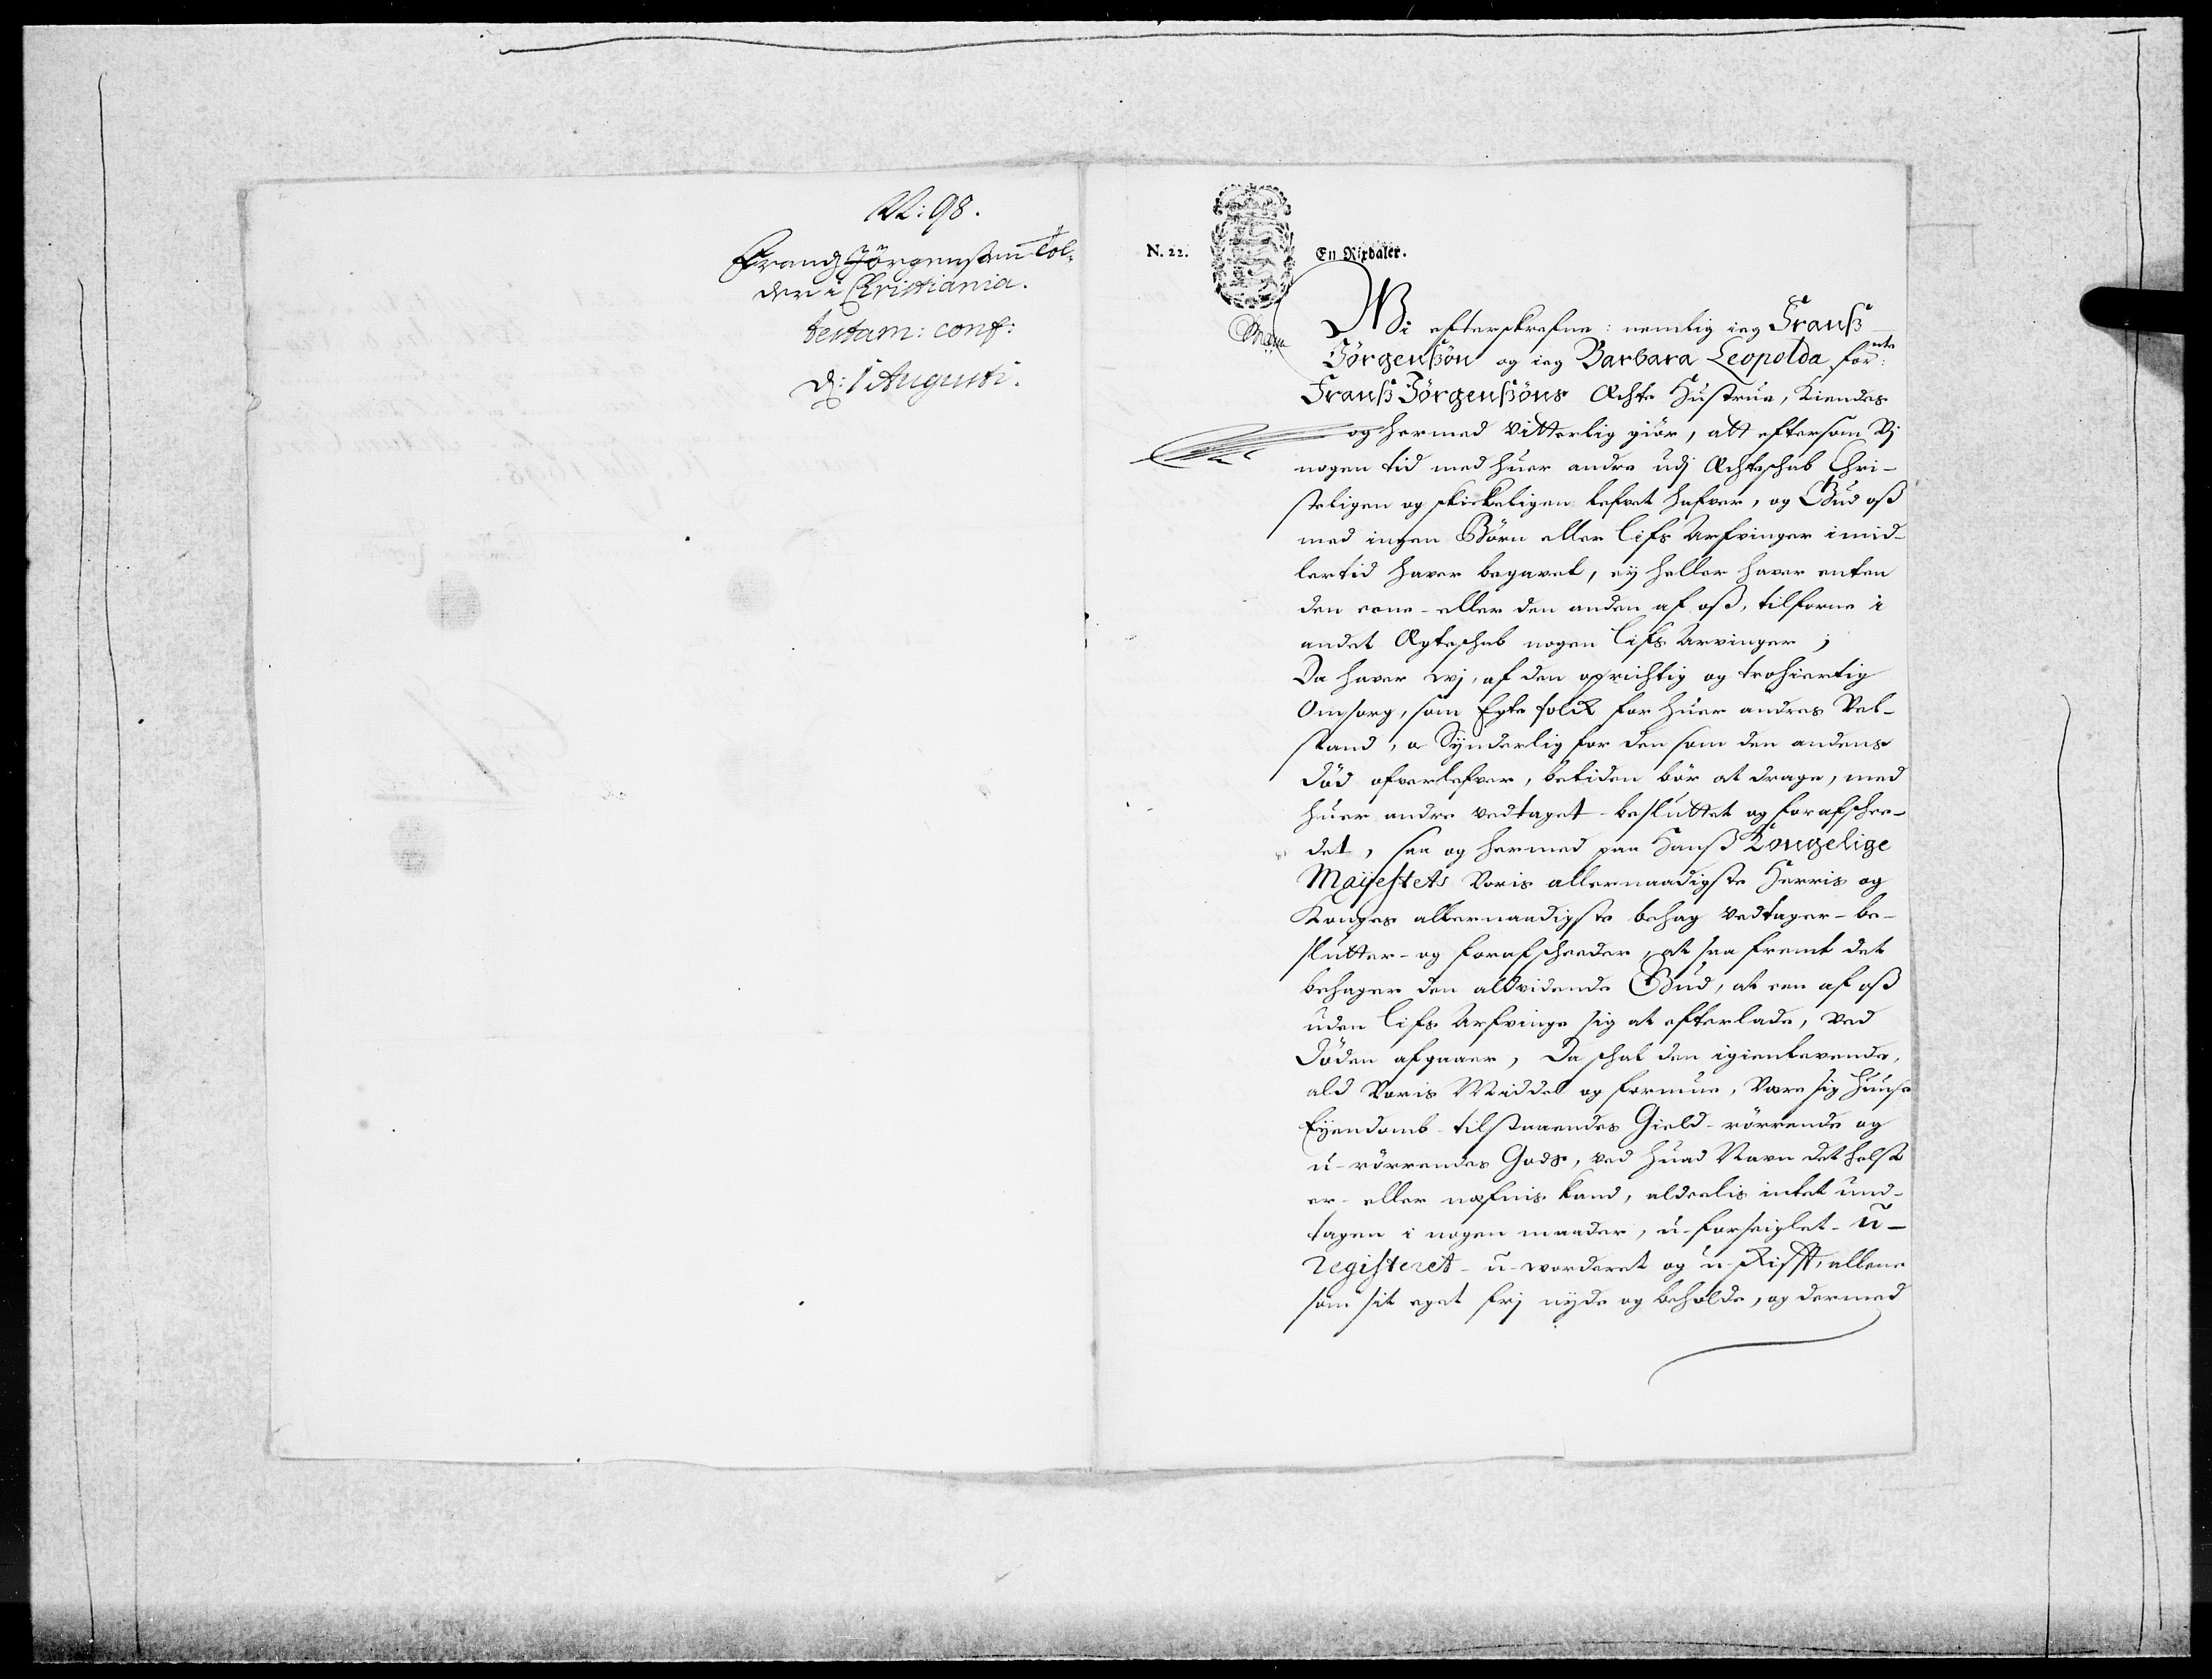 N: 98.
Frandz Jörgensen Tol-
der i Christiania.
testam: conf:
d: 1 Augusti.
N. 22.
En Rixdaler.
Wi efterskrefne: nemlig ieg Franß
Jörgenßön og ieg Barbara Leopolda for:nte
Franß Jörgenßöns Ächte Hustrue, Kiendes
og hermed vitterlig giör, att eftersom Vj
nogen tid med huer andre udj Ächteschab Chri-
steligen og skickeligen lefvet hafver, og Gud oß
med ingen Börn eller lifs Arfvinger imid-
lertid haver begavet, ey heller haver enten
den eene- eller den anden af oß, tilforne i
andet Ægteschab nogen lifs Arvinger;
Da haver wj, af den oprichtig og trohiertig
Omsorg, som Egte folck for huer andres Vel-
stand, o Synderlig for den som den andens
död ofverlefver, betiden bör at drage, med
huer andre vedtaget- besluttet og forafschee-
det, saa og hermed paa Hanß Kongelige
Mayestets Voris allernaadigste Herris og
Konges allernaadigste behag vedtager- be-
slutter- og forafscheeder, at saa fremt det
behager den alvidende Gud, at een af oß
uden lifs Arfvinge sig at efterlade, ved
Döden afgaaer, Da schal den igienlevende,
ald Voris Middel og formue, Være sig Huuse
Eyendomb tilstaaendes Gield- rörrende og
u-rörrendes Gods, ved huad Navn det helst
er- eller næfnis kand, aldeelis intet und-
tagen i nogen maader, u-forseiglet- u-
registeret- u-vorderet og u-skifft, allene
som sit eget frj nyde og beholde, og dermed